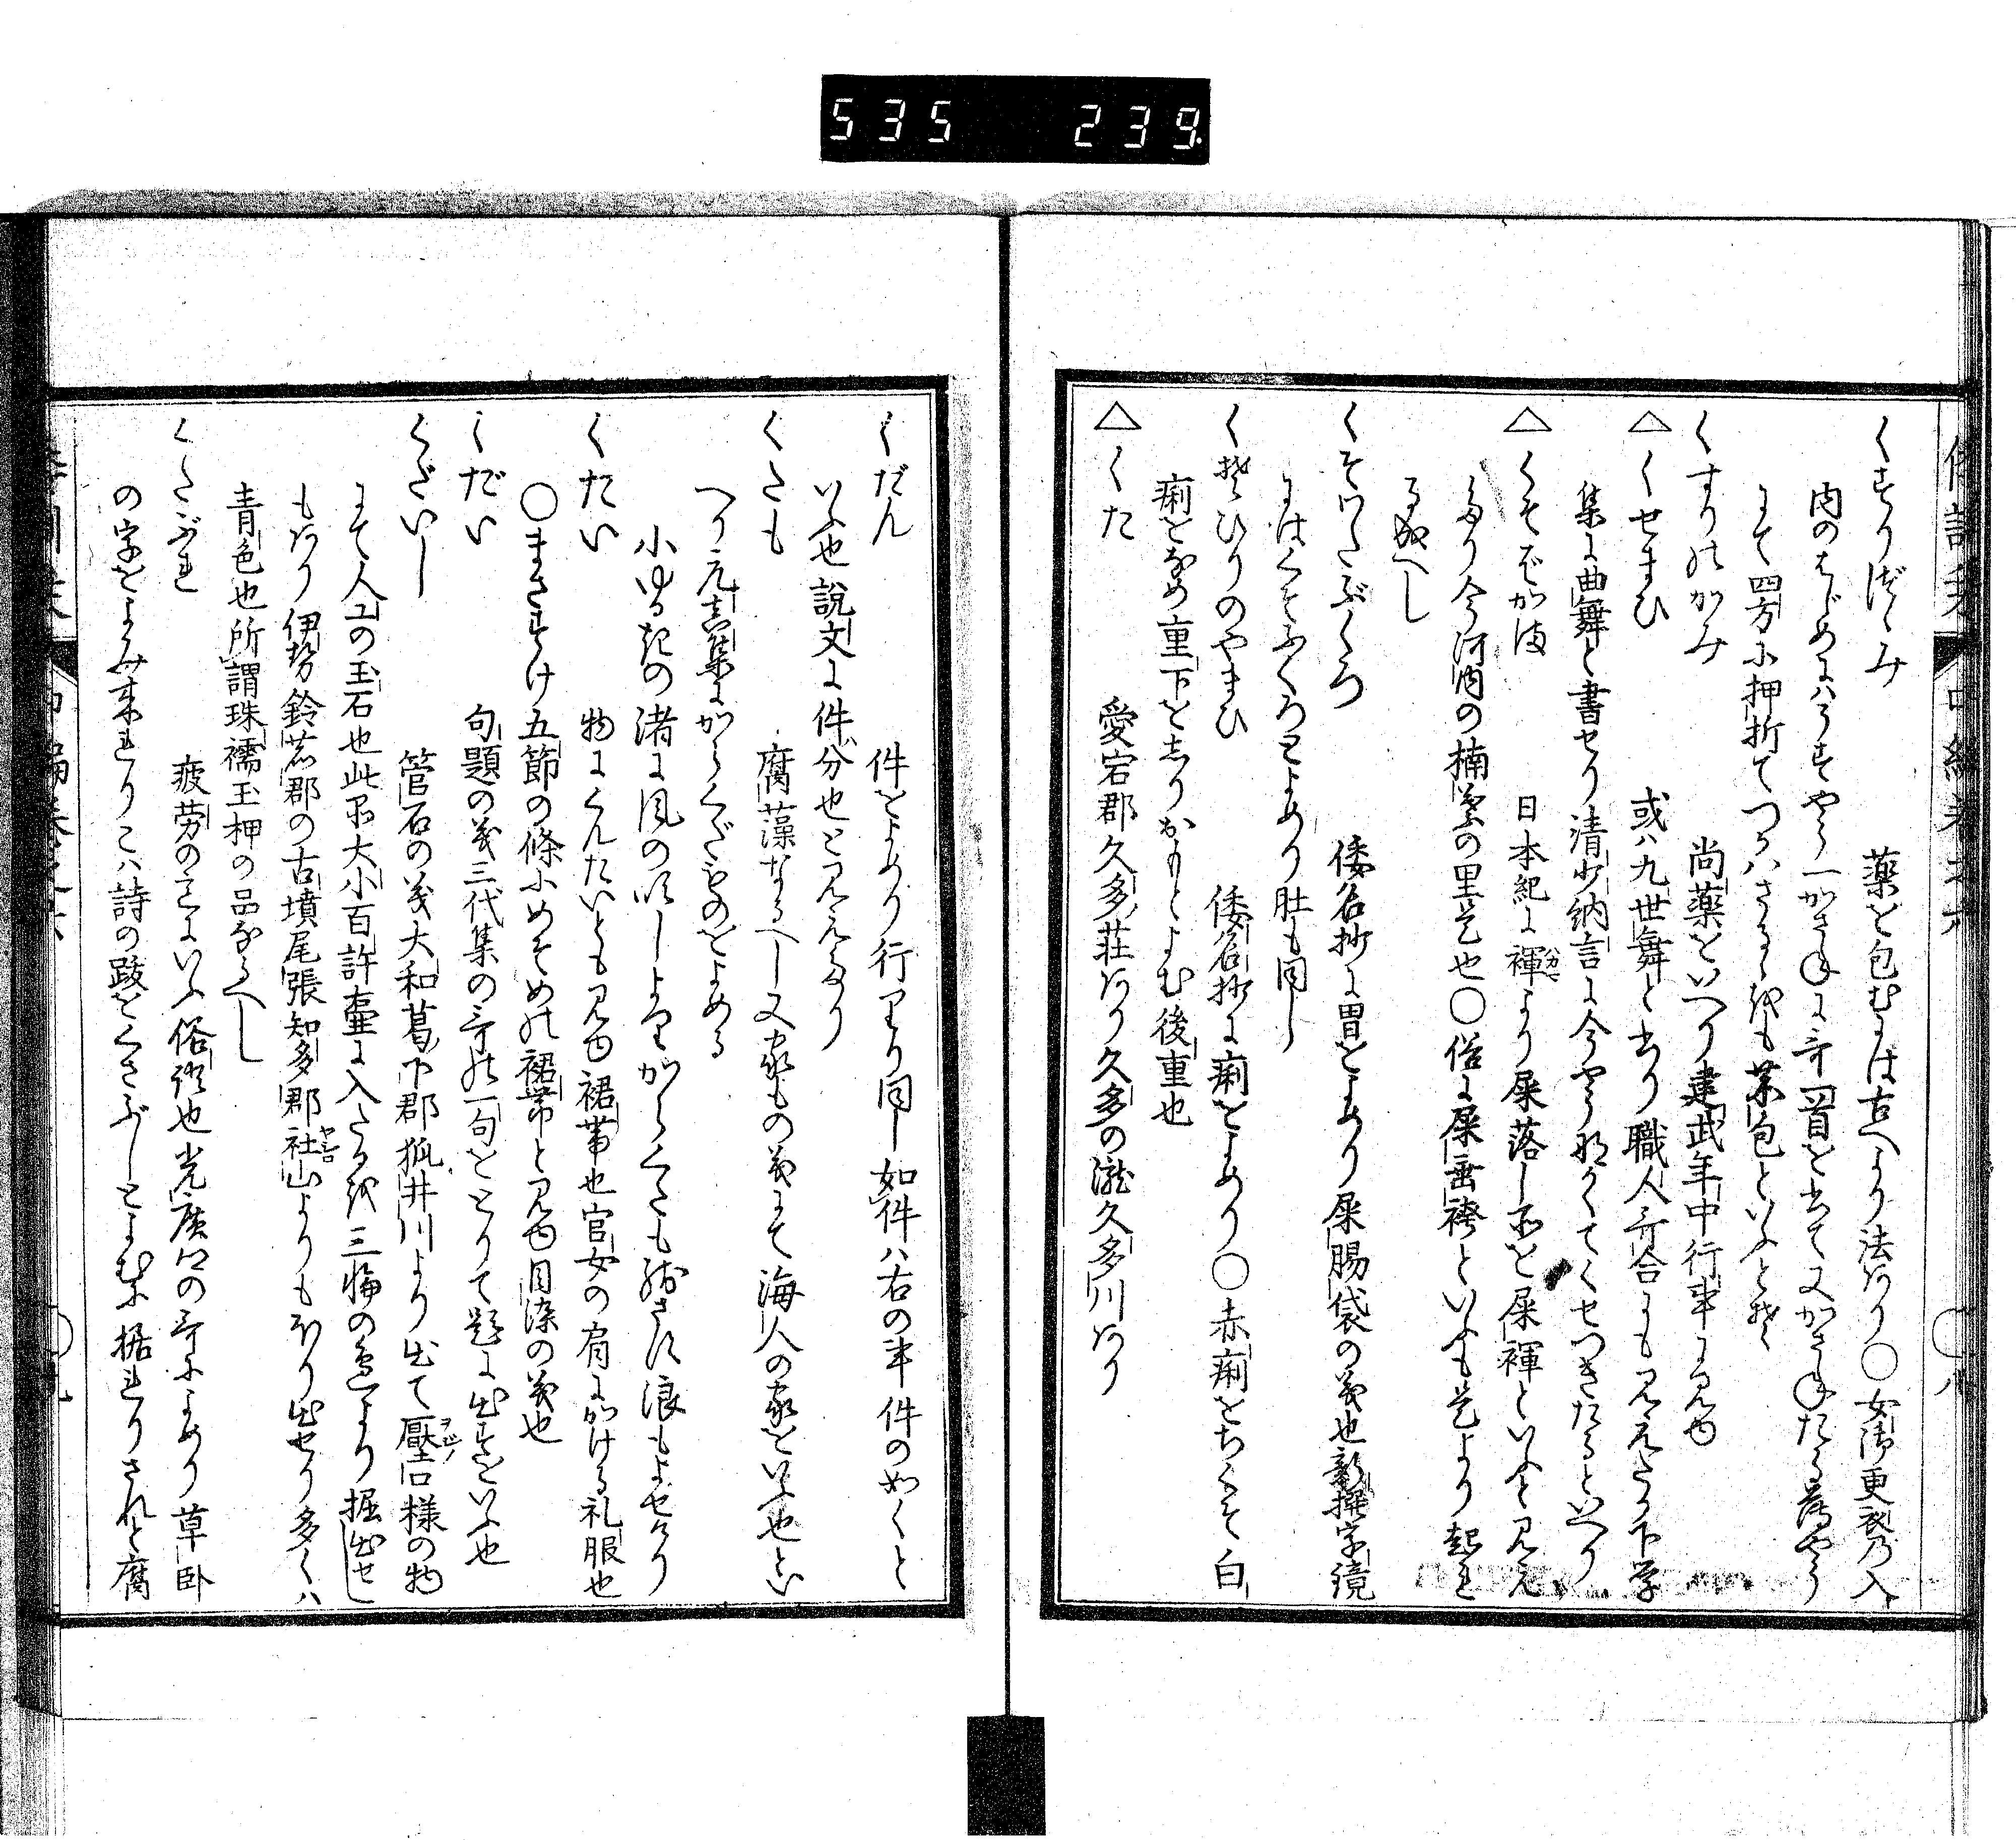 535 239
くすりづゝみ 薬を包むには古へより法あり〇女御更衣乃入
内のはじめにハうすやう一かさねに哥一首を書て又かさねたる薄やう
にて四方に押折てつゝハさるゝ成も薬包といふとそ
くすりのかみ 尚薬をいへり建武年中行事に見ゆ
△くせまひ 或ハ九世舞と書り職人哥合にも見えたり下学
集に曲舞と書せり清少納言に今やうながくてくせつきたるといへり
△くそばかま 日本紀に褌より屎落し所を屎褌といふと見え
たり今河内の楠葉の里是也〇俗に屎垂袴といふも是より起れ
る成へし
くそわたぶくろ 倭名抄に胃をよめり屎腸袋の義也新撰字鏡
にはくそふくろとよめり肚も同し
くそひりのやまひ 倭名抄に痢をよめり〇赤痢をちくそ白
痢をなめ重下をしりおもとよむ後重也
△くた 愛宕郡久多荘あり久多の瀧久多川あり
くだん 件をよめり行くより同し如件ハ右の事件のめくと
いふ也説文に件分也と見えたり
くたも 腐藻なるへし又家もの義にて海人の家をいふ也とい
へり元真集にがらくだものをよめる
小ゆるきの渚に風の吹しよりからくたも残さす浪もよせけり
くたい 物にくんたいとも見ゆ裙帯也官女の肩にかける礼服也
〇まさすけ五節の條にめそめの裙帯と見ゆ目染の義也
くだい 句題の義三代集の哥の一句をとりて題に出すをいふ也
くだいし 管石の義大和葛下郡狐井川より出て壓口様の物
にて人工の玉石也此等大小百許壷に入たる成三輪の邊より掘出せし
もあり伊勢鈴鹿郡の古墳尾張知多郡社山よりもほり出せり多くハ
青色也所謂珠襦玉柙の品なるへし
くたぶれ 疲労の言にいふ俗語也光廣卿の哥によめり草臥
の字をよみ来れりこハ詩の跋をくさぶしとよむに據れりされと腐